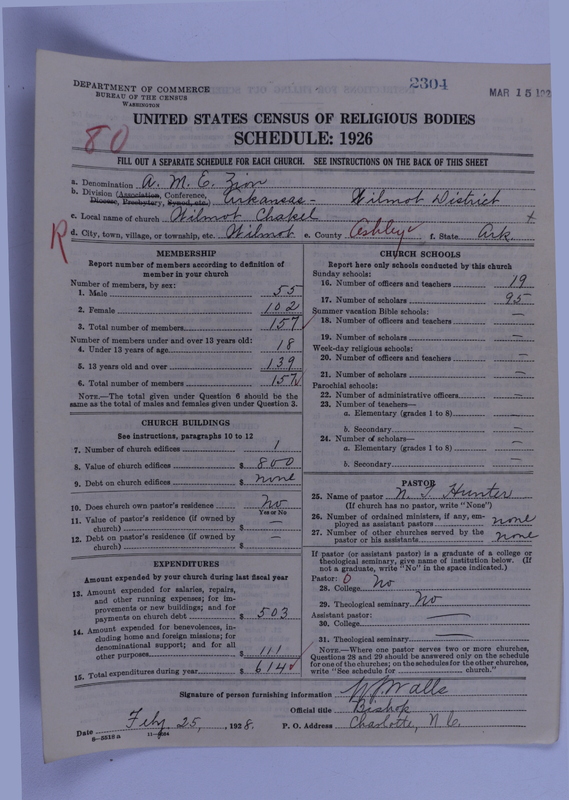 DEPARTMENT OF COMMERCE
BUREAU OF THE CENSUS
WASHINGTON
2304
MAR 15 192
80
UNITED STATES CENSUS OF RELIGIOUS BODIES
SCHEDULE: 1926
FILL OUT A SEPARATE SCHEDULE FOR EACH CHURCH. SEE INSTRUCTIONS ON THE BACK OF THIS SHEET
a. Denomination A. M. E. Zion
b. Division (Association, Conference, Diocese, Presbytery, Synod, etc.) Arkansas - Wilmot District
c. Local name of church Wilmot Chapel
R
d. City, town, village, or township, etc. Wilmot e. County Ashley f. State Ark.
MEMBERSHIP
Report number of members according to definition of
member in your church
Number of members, by sex:
1. Male 55
2. Female 102
3. Total number of members 157
Number of members under and over 13 years old:
4. Under 13 years of age 18
5. 13 years old and over 139
6. Total number of members 157
NOTE.—The total given under Question 6 should be the
same as the total of males and females given under Question 3.
CHURCH BUILDINGS
See instructions, paragraphs 10 to 12
7. Number of church edifices 1
8. Value of church edifices $ 800
9. Debt on church edifices $ none
10. Does church own pastor's residence No
Yes or No
11. Value of pastor's residence (if owned by
church) $ —
12. Debt on pastor's residence (if owned by
church) $ —
EXPENDITURES
Amount expended by your church during last fiscal year
13. Amount expended for salaries, repairs,
and other running expenses; for im-
provements or new buildings; and for
payments on church debt $ 503
14. Amount expended for benevolences, in-
cluding home and foreign missions; for
denominational support; and for all
other purposes 111
15. Total expenditures during year $ 614
CHURCH SCHOOLS
Report here only schools conducted by this church
Sunday schools:
16. Number of officers and teachers 19
17. Number of scholars 95
Summer vacation Bible schools:
18. Number of officers and teachers —
19. Number of scholars —
Week-day religious schools:
20. Number of officers and teachers —
21. Number of scholars —
Parochial schools:
22. Number of administrative officers —
23. Number of teachers—
a. Elementary (grades 1 to 8) —
b. Secondary —
24. Number of scholars—
a. Elementary (grades 1 to 8) —
b. Secondary —
PASTOR
25. Name of pastor Hunter
(If church has no pastor, write "None")
26. Number of ordained ministers, if any, em-
ployed as assistant pastors none
27. Number of other churches served by the
pastor or his assistants none
If pastor (or assistant pastor) is a graduate of a college or
theological seminary, give name of institution below. (If
not a graduate, write "No" in the space indicated.)
Pastor: 0
28. College No
29. Theological seminary No
Assistant pastor:
30. College —
31. Theological seminary —
NOTE.—Where one pastor serves two or more churches,
Questions 28 and 29 should be answered only on the schedule
for one of the churches; on the schedules for the other churches,
write "See schedule for church."
Signature of person furnishing information W J Walls
Official title Bishop
Date Feby 25, , 1928. P. O. Address Charlotte, N. C.
8-5518 a